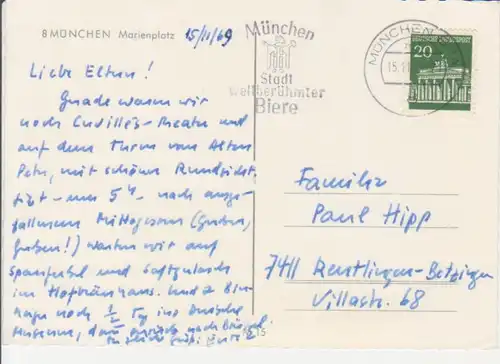 8 MÜNCHEN Marienplatz 15/11/69
München
Stadt
weltberühmter
Biere
MÜNCHEN
15.11
20
DEUTSCHE BUNDESPOST
Liebe Eltern!
Gerade waren wir
noch Cuvilliés-Theater und
auf dem Turm vom Alten
Peter, mit schöner Rundsicht,
jetzt - um 5 h - nach ausge-
fallenem Mittagessen
warten wir auf
Spanferkel und Saftgulasch
im Hofbräuhaus. Und
noch 1/2 Tg ins Deutsche
Museum, dann zurück nach
Familie
Paul Hipp
7411 Reutlingen-Betzingen
Villastr. 68